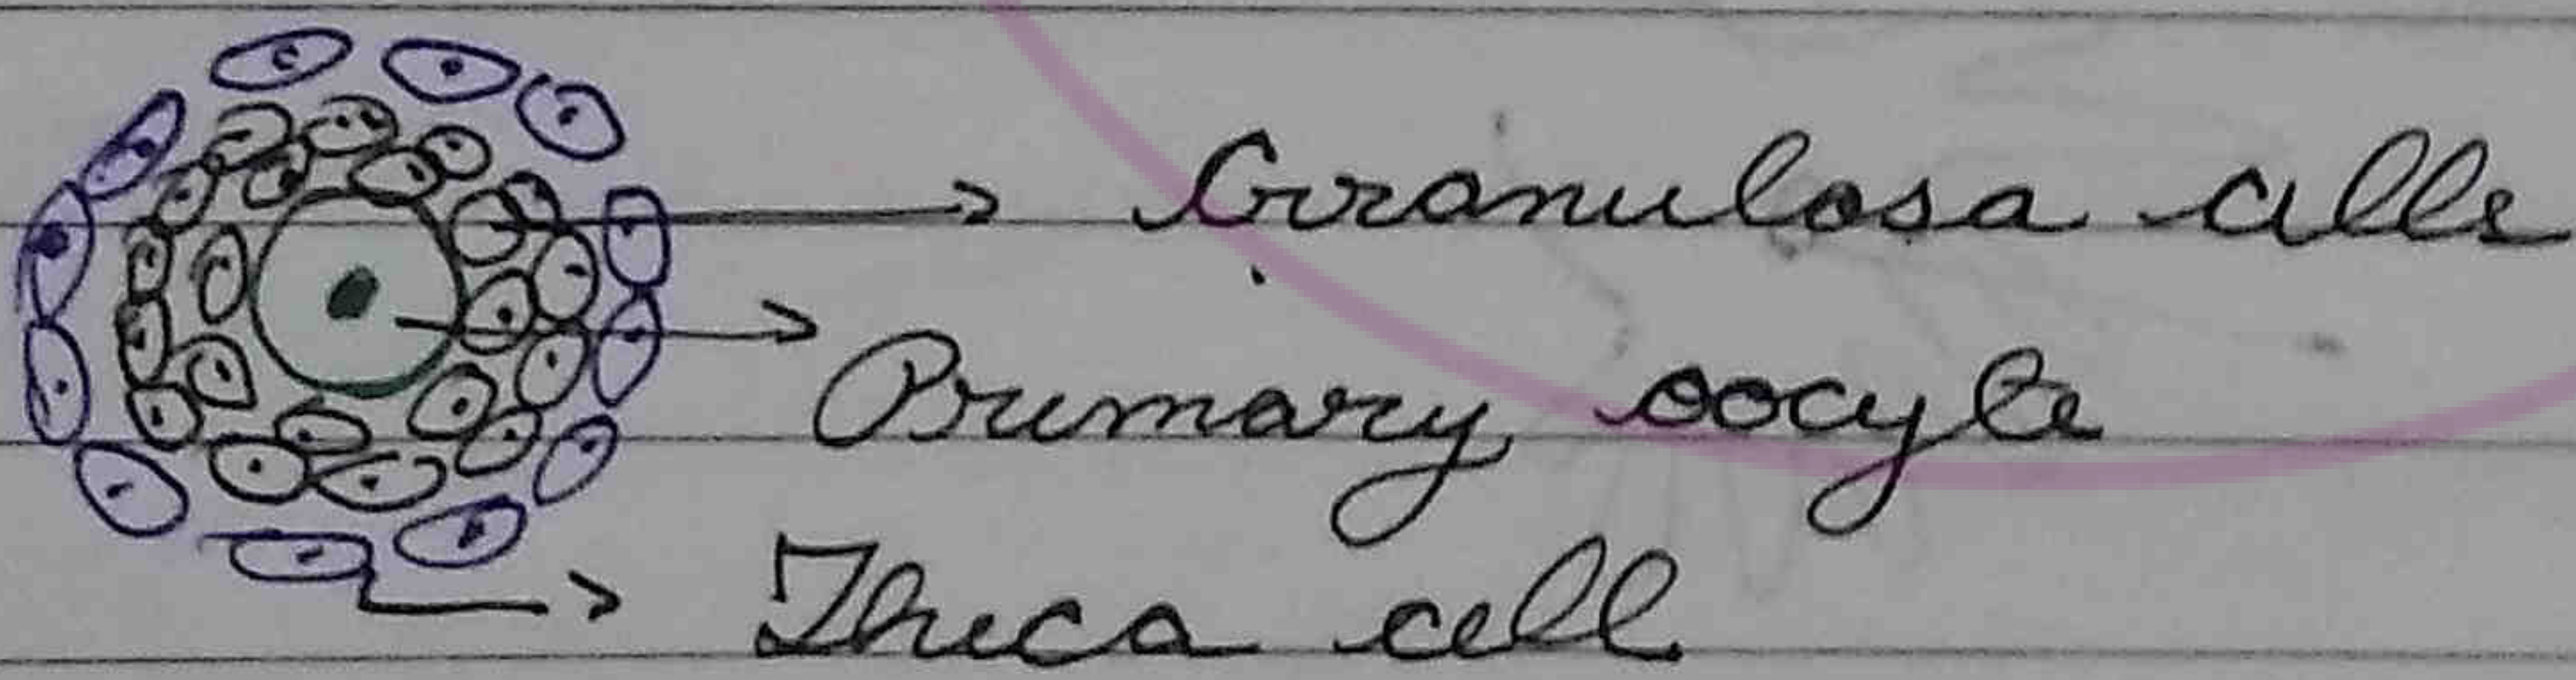 Granulosa cells
Primary oocyte
Theca cell